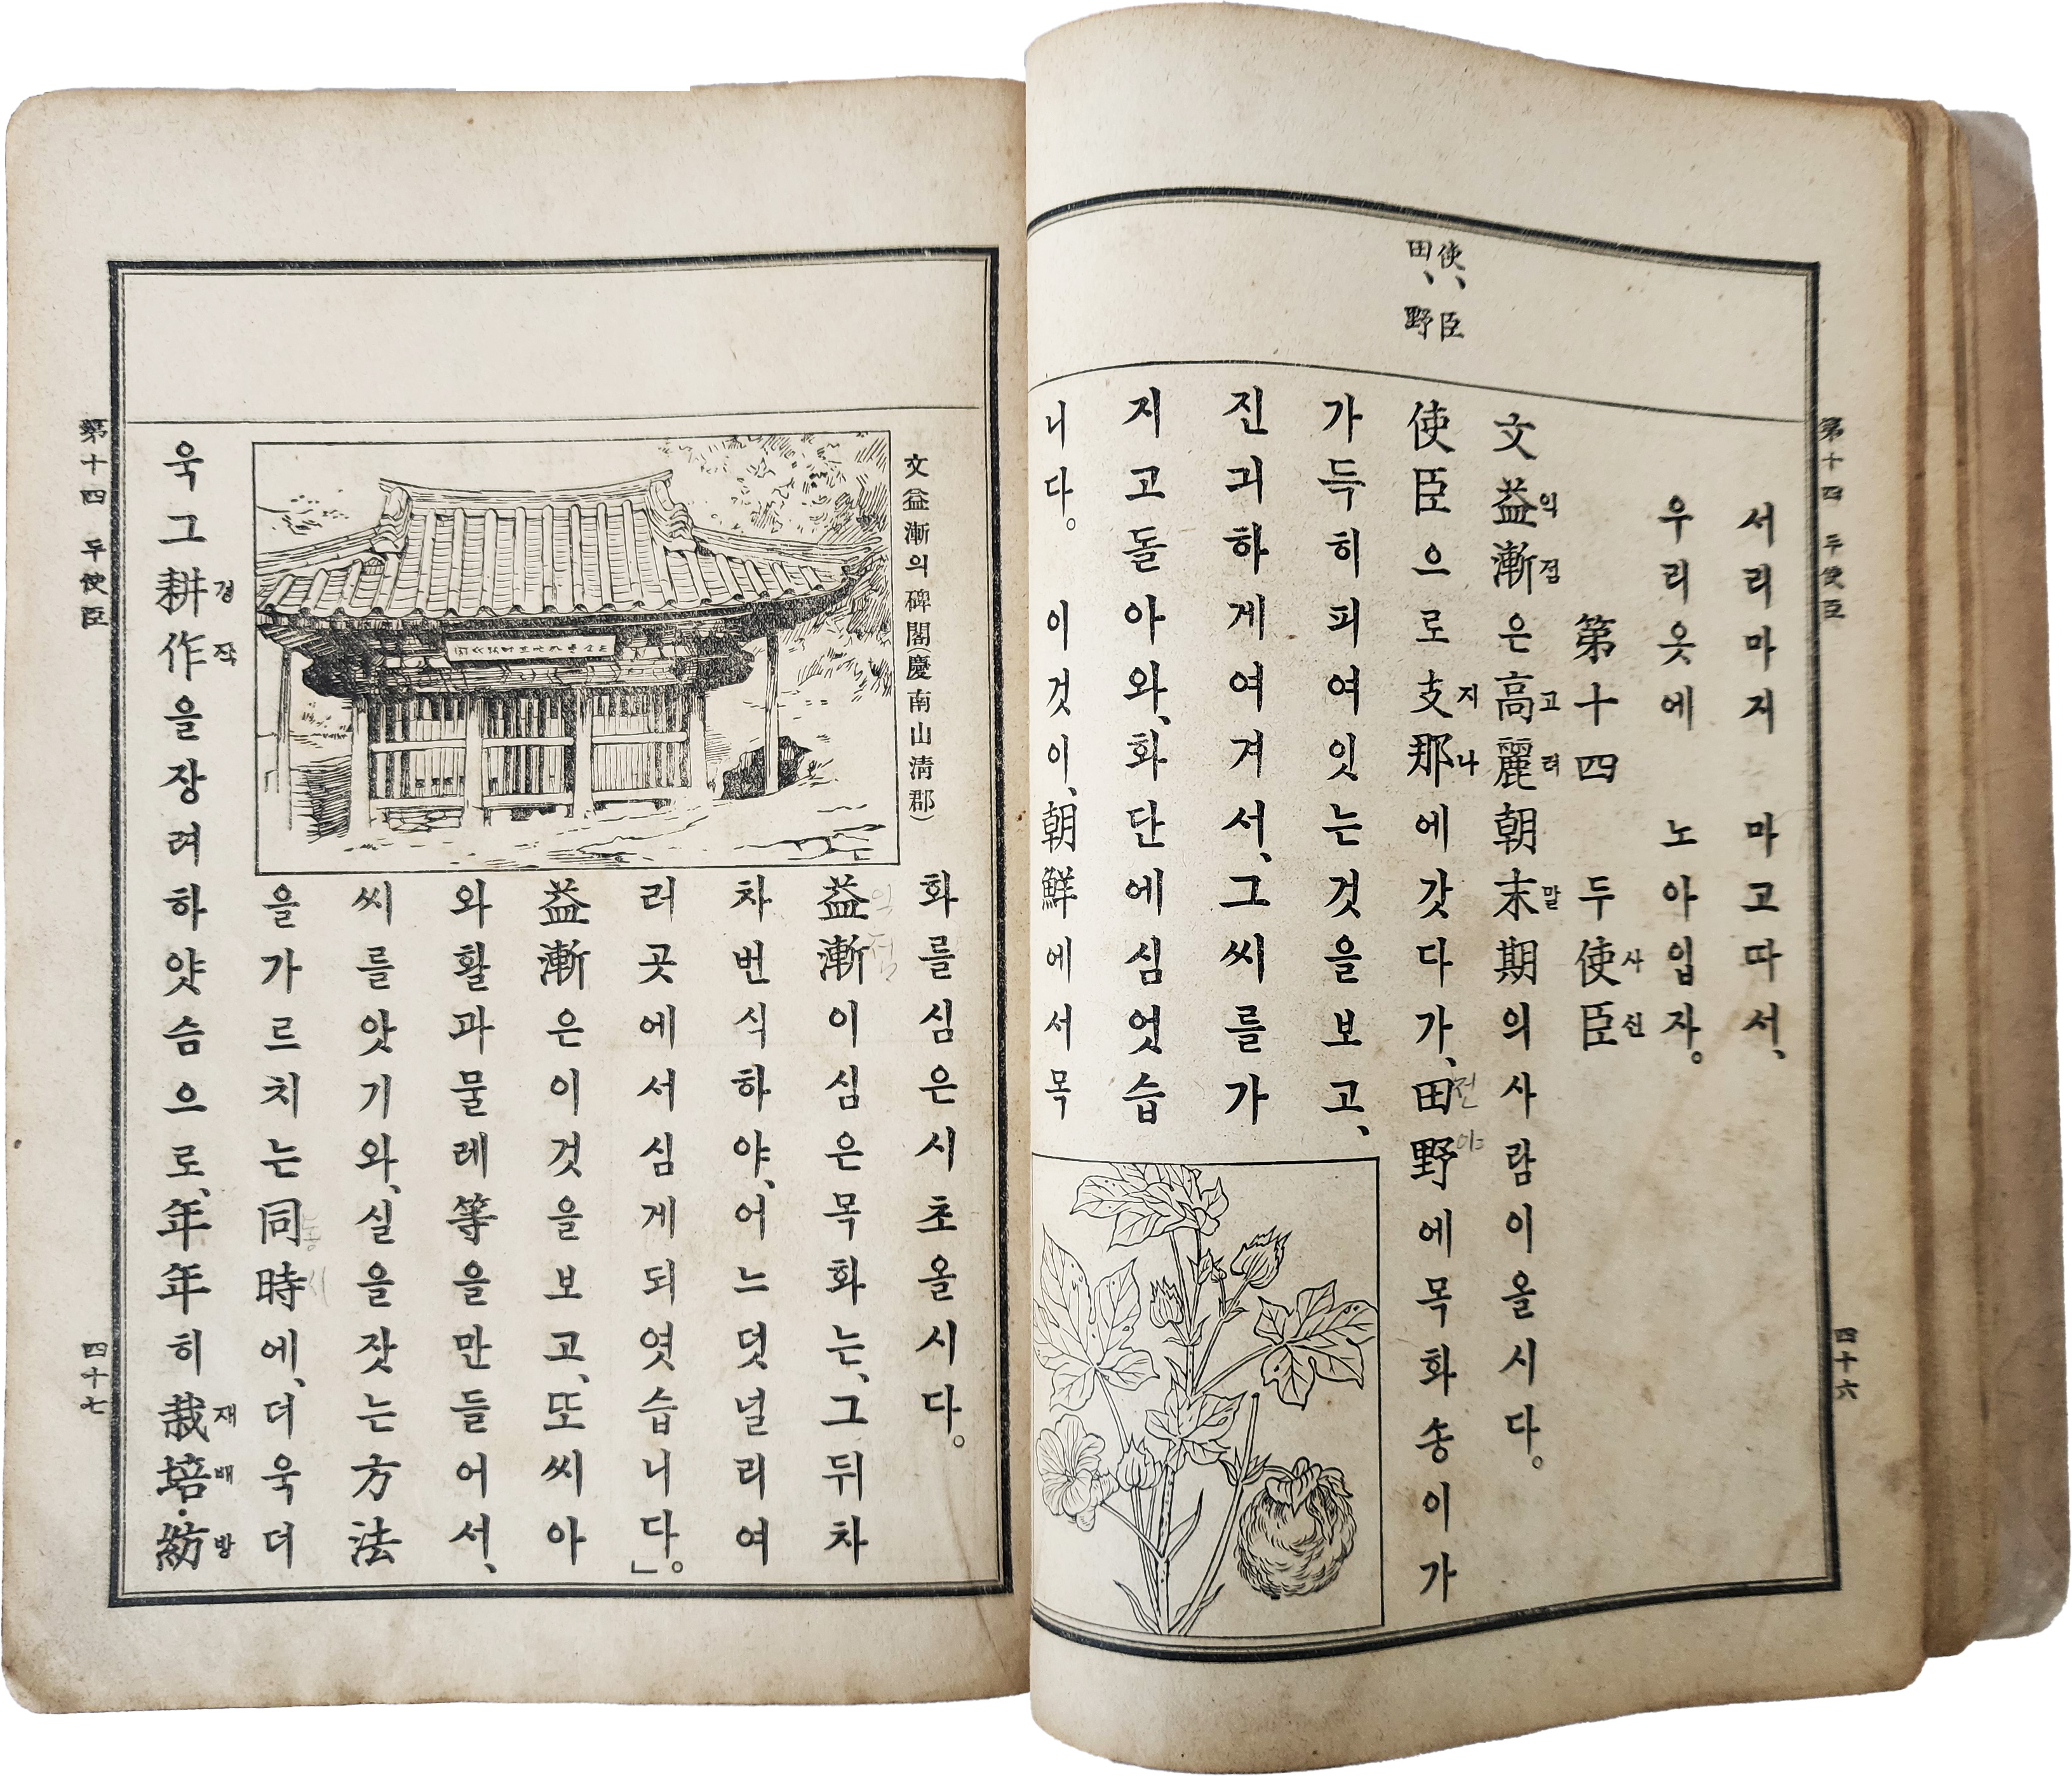 第十四 두使臣
四十六
使、臣
田、野
서리마저 마고따서、
우리옷에 노아입자。
第十四 두使臣
사신
文益漸은高麗朝末期의사람이올시다。
익점 고려 말
使臣으로支那에갓다가、田野에목화송이가
지나 전야
가득히피여잇는것을보고、
진긔하게여겨서、그씨를가
지고돌아와、화단에심엇습
니다。 이것이、朝鮮에서목
文益漸의碑閣(慶南山淸郡)
화를심은시초올시다。
益漸이심은목화는、그뒤차
익점
차번식하야、어느덧널리여
러곳에서심게되엿습니다」。
益漸은이것을보고、또씨아
와활과물레等을만들어서、
씨를앗기와、실을잣는方法
을가르치는同時에、더욱더
동시
욱그耕作을장려하얏슴으로、年年히栽培·紡
경작 재배 방
第十四 두使臣
四十七